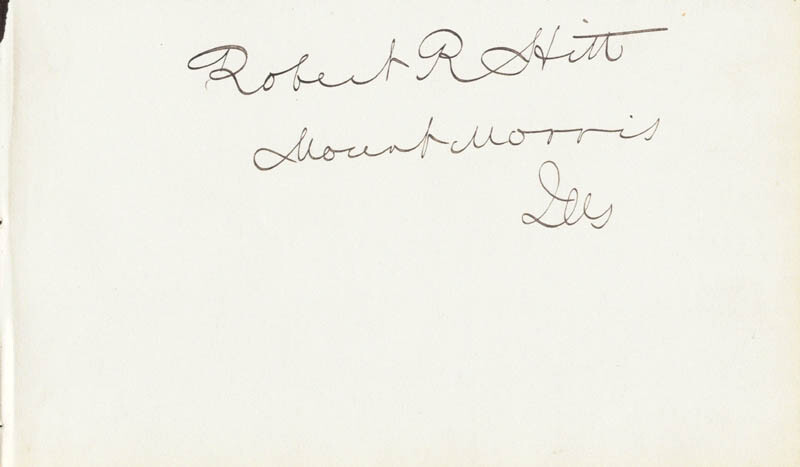 Robert R Hitt
Mount Morris
Ills